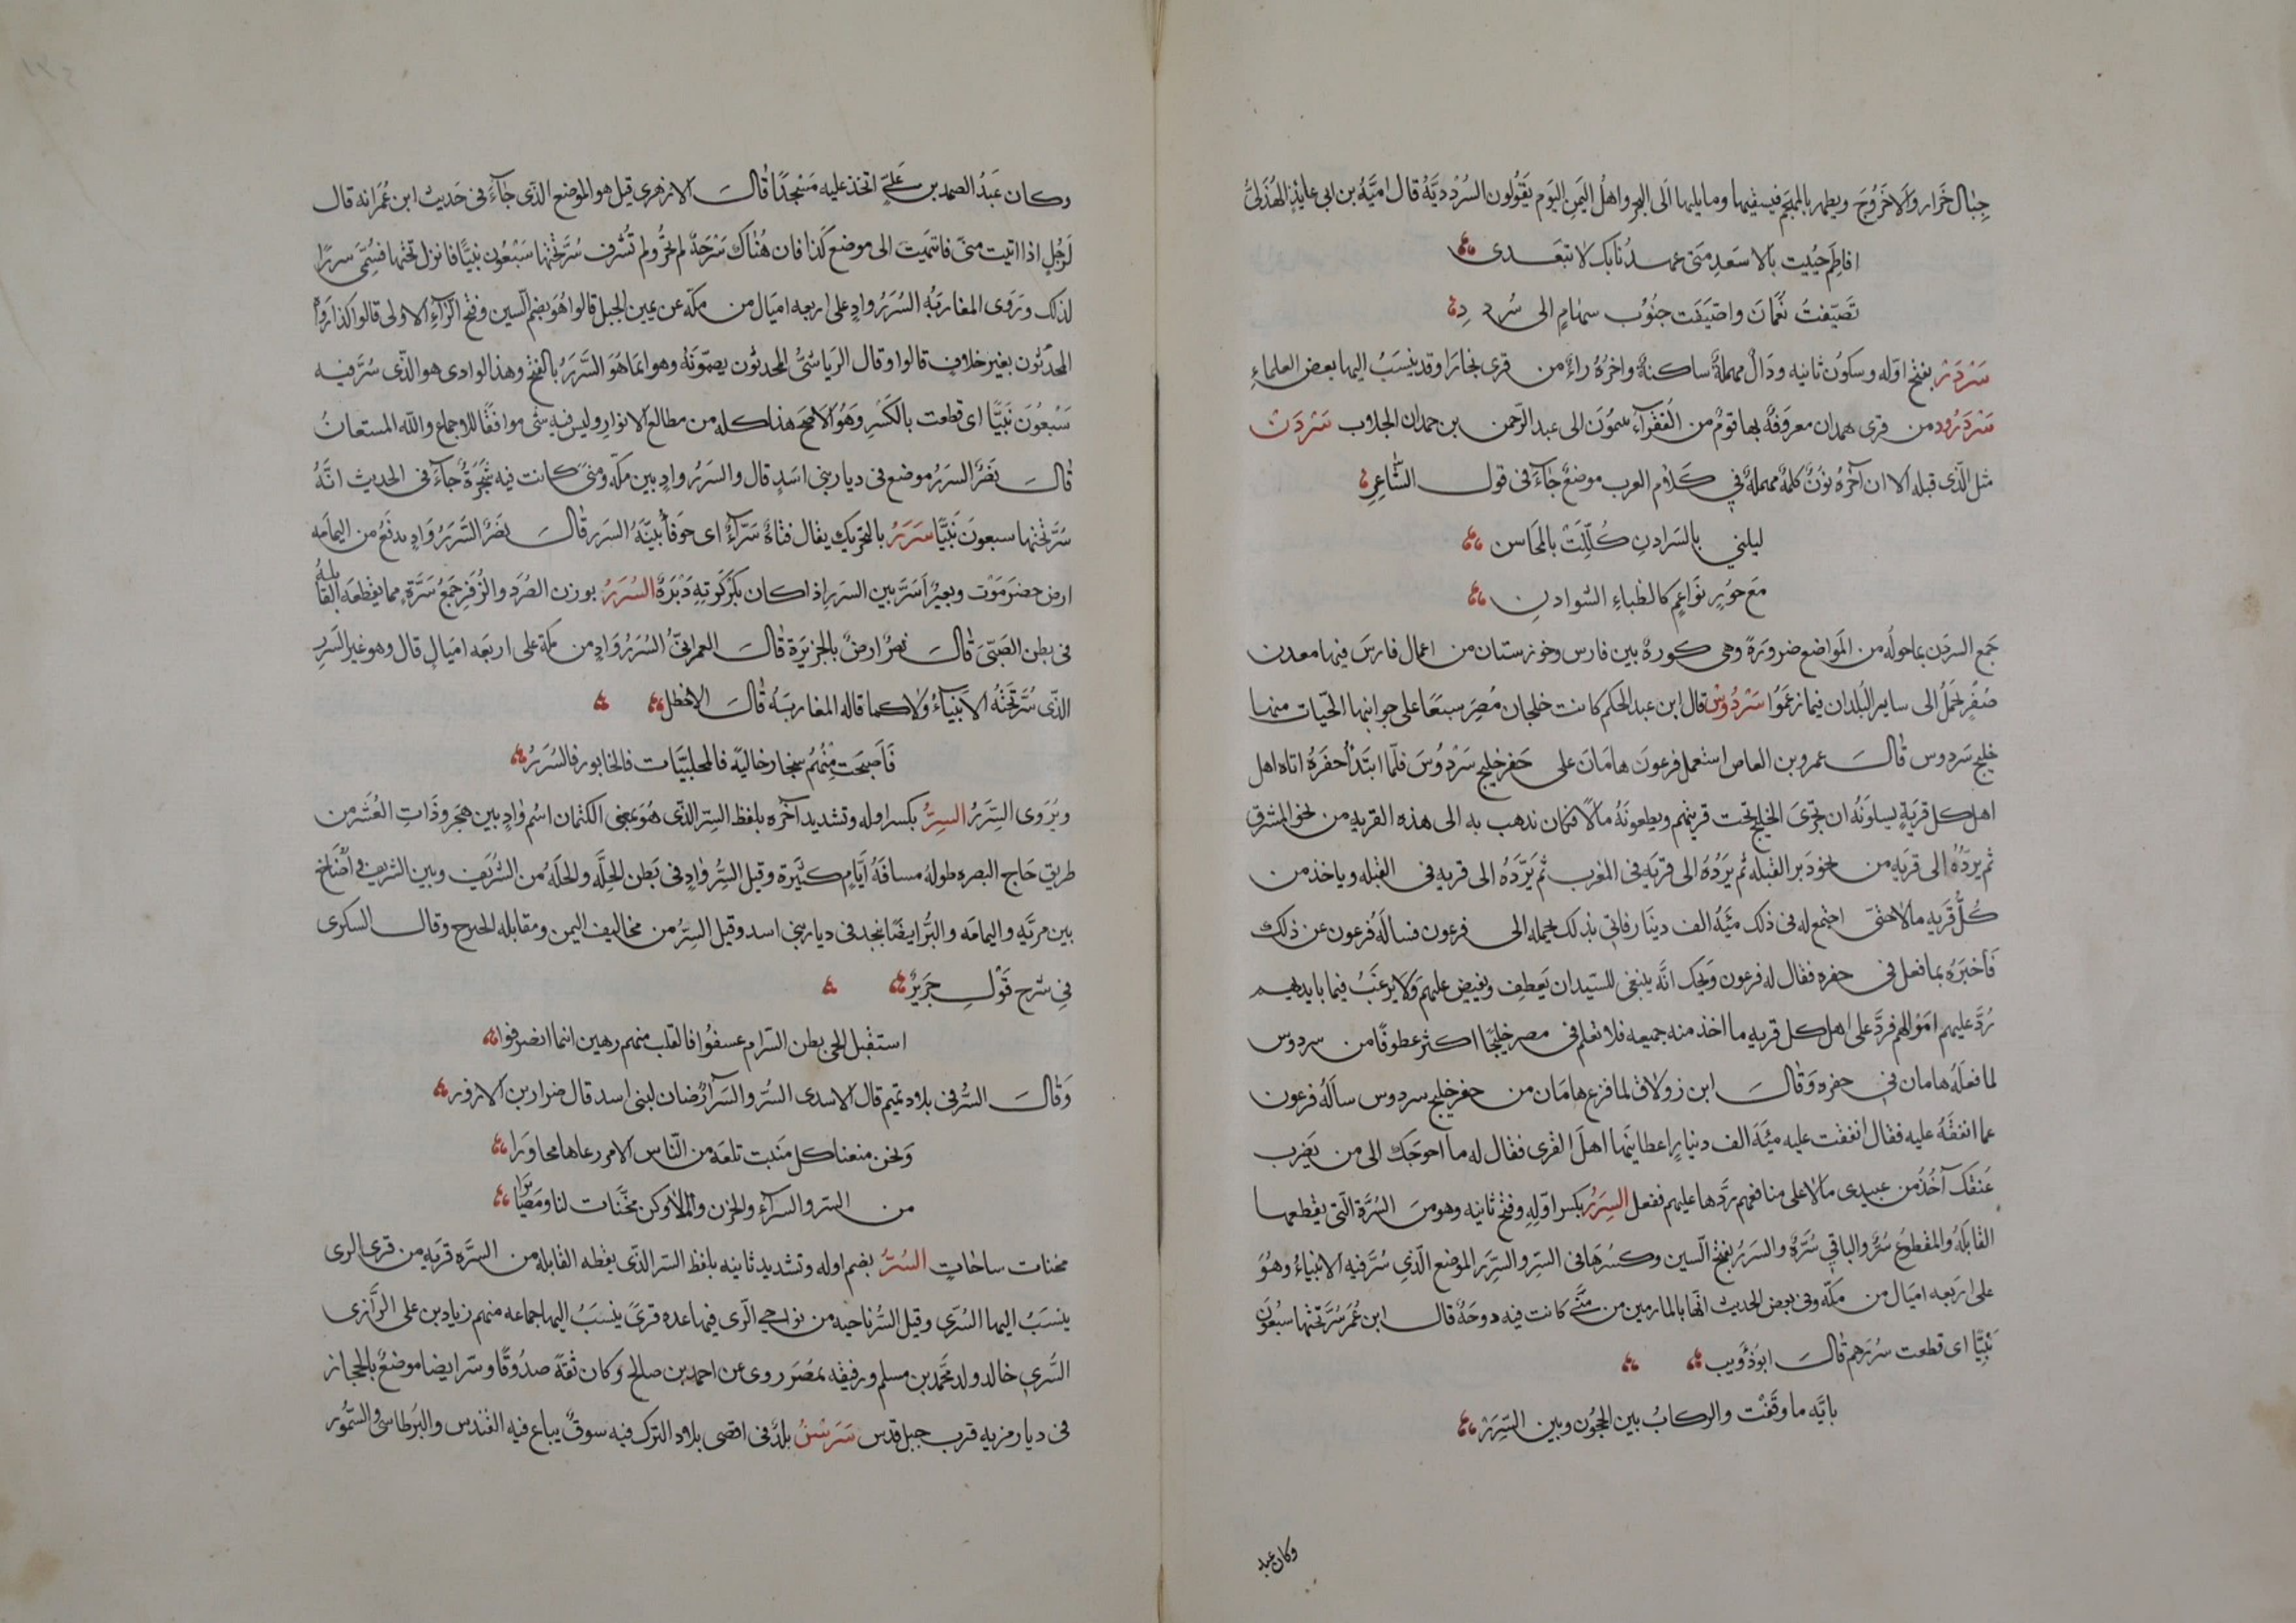 جبال حَرَار وَالاخَرُوجَ ويطهر بالمهجَم فيسقيها وما يليها الَى البحر واهلُ اليَمن اليَوم يَقُولون السُرْدديَّةُ قال اميَّةُ بن ابى عايذٍ الهُذَلىُّ
افاطِمَ حُيّيت بالاسعَدِ مَتى عهدُنا بك لا تبعَدى
تَصَيّفتُ نَُعْمَانَ واصَيَفَت جنُوُب سهَامٍ الى سُردَدِ
سَرْدَرْ بفتح اوّله وسكُون ثانيه ودَالٌ مهملةٌ ساكنةٌ واخرُهُ راءٌ من قرى بخارَا وقد ينسَبُ اليها بعض العلماءِ
سَرْدَرُود من قرى همدان معروَفةٌ بها قومٌ من الفُقَرآءِ ينمُونَ الى عبد الرّحمن بن حمدان الجلاب سَرْدَن
مثل الّذى قبله الا ان آخرهُ نونٌ كلمةٌ مهملةٌ في كَلام العرب موضعٌ جآءَ فى قول الشّاعِرِ
ليلتي بالسَرادِنِ كُلّلَتْ بالمَحَاسن
مَع حوُرٍ نَواعِمٍ كالظباءِ الشوادنِ
جَمع السردَن بما حولُه من المَواضع ضرورَةً وهى كورةٌ بين فارس وخوزستان من اعمال فارسَ فيها معدن
صُفْرٍ يُحمَلُ الى ساير البُلدان فيما زعمَوُا سَرْدُوسُ قال ابن عبد الحكم كانت خلجان مُصِرَ سبعَا على جوانبها الجّنات منها
خليج سَردوس قالَ عمرو بن العاص استعمل فرعونَ هامَانَ على حَفر خليج سَرْدُوسَ فلّما ابتَدأ حفرَهُ اتاه اهل
اهل كل قريَةٍ يسلونَهُ ان تجرىَ الخليج تحت قريتهم ويعطونَهُ مالًا فكان يذهب به الى هذه القريه من نحو المشرق
ثم يردّهُ الى قريَةٍ من نحو دَبر القبله ثم يَردُّهُ الى قريَةٍ فى المغرب ثمَ يَرُدَّهُ الى قريةٍ فى القبله وياخذ من
كُلَّ قريَةٍ مالاً حتىّ اجتمع له فى ذلك مئةُ الف دينَار فاتي بذلك يحمله الى فرعون فسالَهُ فرعون عن ذلك
فَاَخبَرَهُ بما فعل فى حفره فقال له فرعون وَيحك انَّه ينبغى للسّيد ان يَعطِف ويفيض عليهمَ ولا يرغبُ فيما بايديهم
رُدَّ عليهم اموَالهم فردَّ على اهل كل قريةٍ ما اخذ منه جميعه فلا نعلم فى مصر خليجًا اكثر عطوفًا من سردوس
لما فعلَهُ هامان فى حفره وَقالَ ابن زولاق لما فرَغ هامَان من حفر خليج سردوس سالَهُ فرعون
عما انفقَهُ عليه فقال انفقت عليه مئَة الف دينارٍ اعطانيَها اهلَ القرى فقال له ما احوجَك الى من يَضرب
عُنقك آخُذُ من عبيدى مالاً على منافعهم رَدَّها عليهم ففعل السِرَرُ بكسر اوّلهِ وفتح ثانيه وهو منَ السُرَّةِ الّتى يقطعها
القابلَهُ والمقطوعُ سُرٌّ والباقى سُرَّةٌ والسَررُ بفتح السّين وكسُرهَا فى السِرِ والسِّرَر الموضع الّذي سُرَّ فيه الانبياءُ وهُوَ
على ارَبَعه اميَال من مكّه وفى بعض الحديث انّها بالمازمين من مِنَّى كانت فيه دوحَةٌ قال ابن عُمَرَ سُرَّ تحتها سبعُونَ
نبيًّا اى قطعت سُرَرهم قالَ ابوُذؤيب
بايَّه ما وقَّفتْ والركابُ بين الحجُون وبين السِّرَرْ
وكان عبد
وكان عَبدُ الصمد بن عَلىّ اتّخذ عليه مَسْجدًا قالَ الازهرى قيل هو الموضع الذّى جآءَ فى حَديث ابن عُمَر انه قال
لرَجُلٍ اذا اتيت منىً فانتهَيت الى موضع كَذا فان هُنَاك سَرْحَةً لم تُجرَّ ولم تُسْرف سُرَّ تحْتها سَبْعُون نبيًّا فانزل تحتها فسُمِّى سررًا
لذلك وَرَوى المغاربَةُ السُرَرُ وادٍ على اربعه اميَال من مكّه عن يمين الجبل قالوا هُوَ بضم السّين وفتْح الرّآءِ الاولى قالوا كذا رَواُ
المحّدثون بغير خلافٍ قالوا وقال الرّياشىُّ المحدثون يضمّونَهُ وهو انما هُوَ السَّرَرُ بالفتْح وهذا الوادى هو الّذى سُرَّ فيه
سَبعُونَ نَبيًّا اى قطعت بالكَسْر وَهُو الاصح هذا كله من مطالع الانوارِ وليس فيه شى موافقًا للاجماع والله المستعانُ
قالَ نصرٌ السَرَرُ موضع فى ديار بنى اسَدٍ قال والسَرَرُ وادٍ بين مكّه ومنَىً كانت فيه شَجَرةٌ جآءَ فى الحديث انَّهُ
سُرَّ تحْتها سبعونَ نَبيًّا سَرَرُ بالتحريك يقال قناةٌ سَرّآءٌ اى جَوفآءُ بيِّنَةُ السَرر قالَ نصرٌ السَّرَرُ وَادٍ يدفَعُ من اليمامه
ارض حضرَمَوْت وبعيرٌ اَسَرَّ بين السَررِ اذا كان بكَرْكَرتِهِ دَبَرَةٌ السُرَرُ بوزن الصُرَد والزُفَرِ جَمعُ سُرَّةٍ مما يقطعَه القابلهُ
فى بطن الصَبّىَ قالَ نصرٌ ارضٌ بالجزيرَة قالَ العمرانىُّ السُرَرُ وَادٍ من مكة على اربعَه اميَالٍ قال وهو غير السَررِ
الذّى سُرَّ تَحْتَهُ الاَنبيَاءُ ولا كما قاله المغاربَهُ قالَ الاخطل
فَأَصبَحَت مِنْهُم سِنجار خاليَه فالمحلبيّات فالخابور فالسُرَرُ
ويُرَوى السِرَرُ السِرُّ بكسر اوله وتشديد آخرِه بلفظ السِرّ الذّى هُوَ بمعنى الكتمان اسْم وَادٍ بين هَجَر وذَاتِ العُشَر من
طريق حَاج البصره طولهُ مسافةُ ايّامٍ كثيَرة وقيل السِرُّ وادٍ فى بَطن الحِلّة والحلَه ُمن الشُرَيف وبين الشريف و اُضَاخ
بين مريّةٍ واليمامه والبُّرّ ايضًا بنجد فى ديار بنى اسد وقيل السِرُّ من مخاليف اليمن ومقابله وقال السكرى
فى شرح قَولِ جَرَيرٌ
استقبل الحى بطن السّرام عسفوُا فالقلب منهم رهين اينما انصرفوا
وَقالَ السُّرُ فى بلاد تميم قال الاسدى السُرّ والسَرآ ارُضان لبنى اسد قال ضرار بن الازور
وَنحن منعنا كل مَنبت تلعَه من النّاس الامر رعاها محاوَرا
من السر والسرآءِ والحزن والملا وكن مخَنَّات لنا ومَصَايرَا
مخنات ساحَاتٍ السُرُّ بضم اوله وتشديد ثانيه بلفظ السر الذّى يقطه القابله من السرَّه قريَه من قرى الرى
ينسَبُ اليها السُرّى وقيل السُرّ ناحيه من نواحى الرّى فيها عده قرىً ينسَبُ اليها جماعه منهم زياد بن على الرّازى
السُّري خالد ولد محّمد بن مسلم ورفيقه بمصَر روى عن احمد بن صالح وكان ثقةً صدُوقًا وسّر ايضا موضعٌ بالحجاز
فى ديار مزيه قرب جبل قدس سَرَشن بلدٌ فى اقصى بلاد الترك فيه سوقٌ يباع فيه القندس والبُرطاسى والسّمُّور